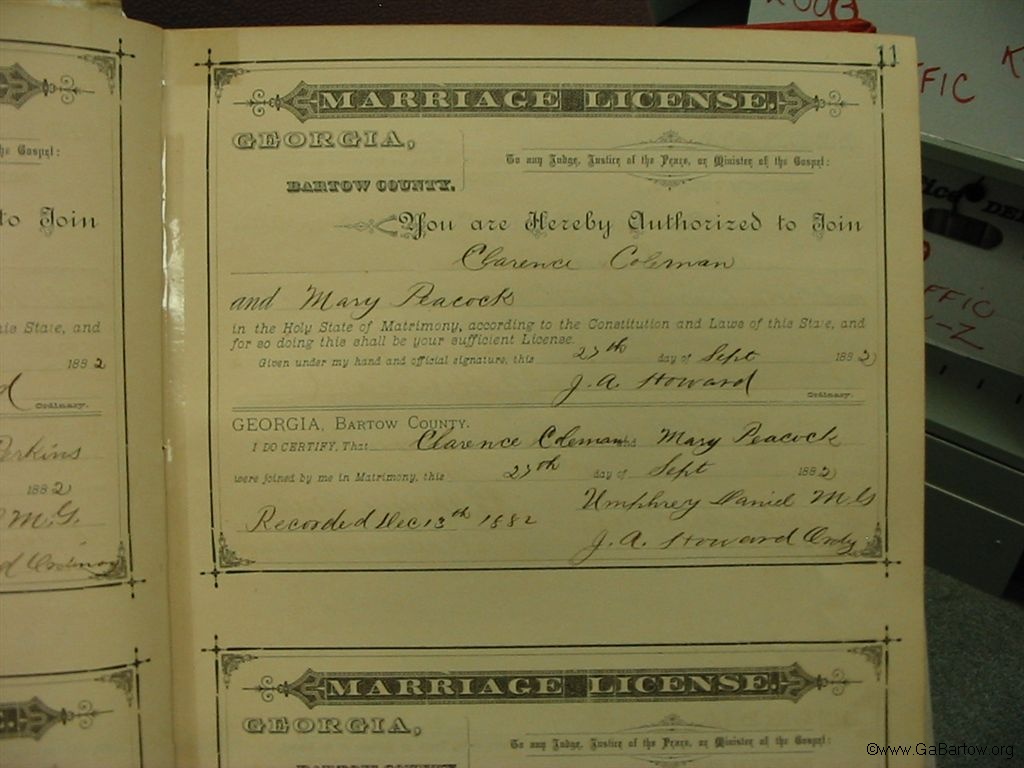 11
MARRIAGE LICENSE.
GEORGIA,
BARTOW COUNTY.
To any Judge, Justice of the Peace, or Minister of the Gospel:
You are Hereby Authorized to Join
Clarence Coleman
and Mary Peacock
in the Holy State of Matrimony, according to the Constitution and Laws of this State, and
for so doing this shall be your sufficient License.
Given under my hand and official signature, this 27th day of Sept 1882
J. A. Howard
Ordinary.
GEORGIA, BARTOW COUNTY.
I DO CERTIFY, That Clarence Coleman and Mary Peacock
were joined by me in Matrimony, this 27th day of Sept 1882
Umphrey Daniel M.G
Recorded Dec 13th 1882
J. A. Howard Ordy
MARRIAGE LICENSE.
GEORGIA,
To any Judge, Justice of the Peace, or Minister of the Gospel:
BARTOW COUNTY
the Gospel:
to Join
this State, and
1882
Ordinary.
Perkins
1882
M.G.
d Ordinary
FFIC
K
FFIC
-Z
©www.GaBartow.org